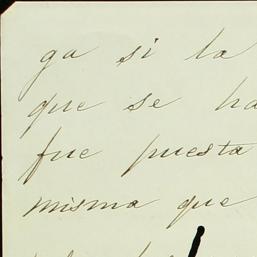 ga si la
que se ha
fue puesta
misma que